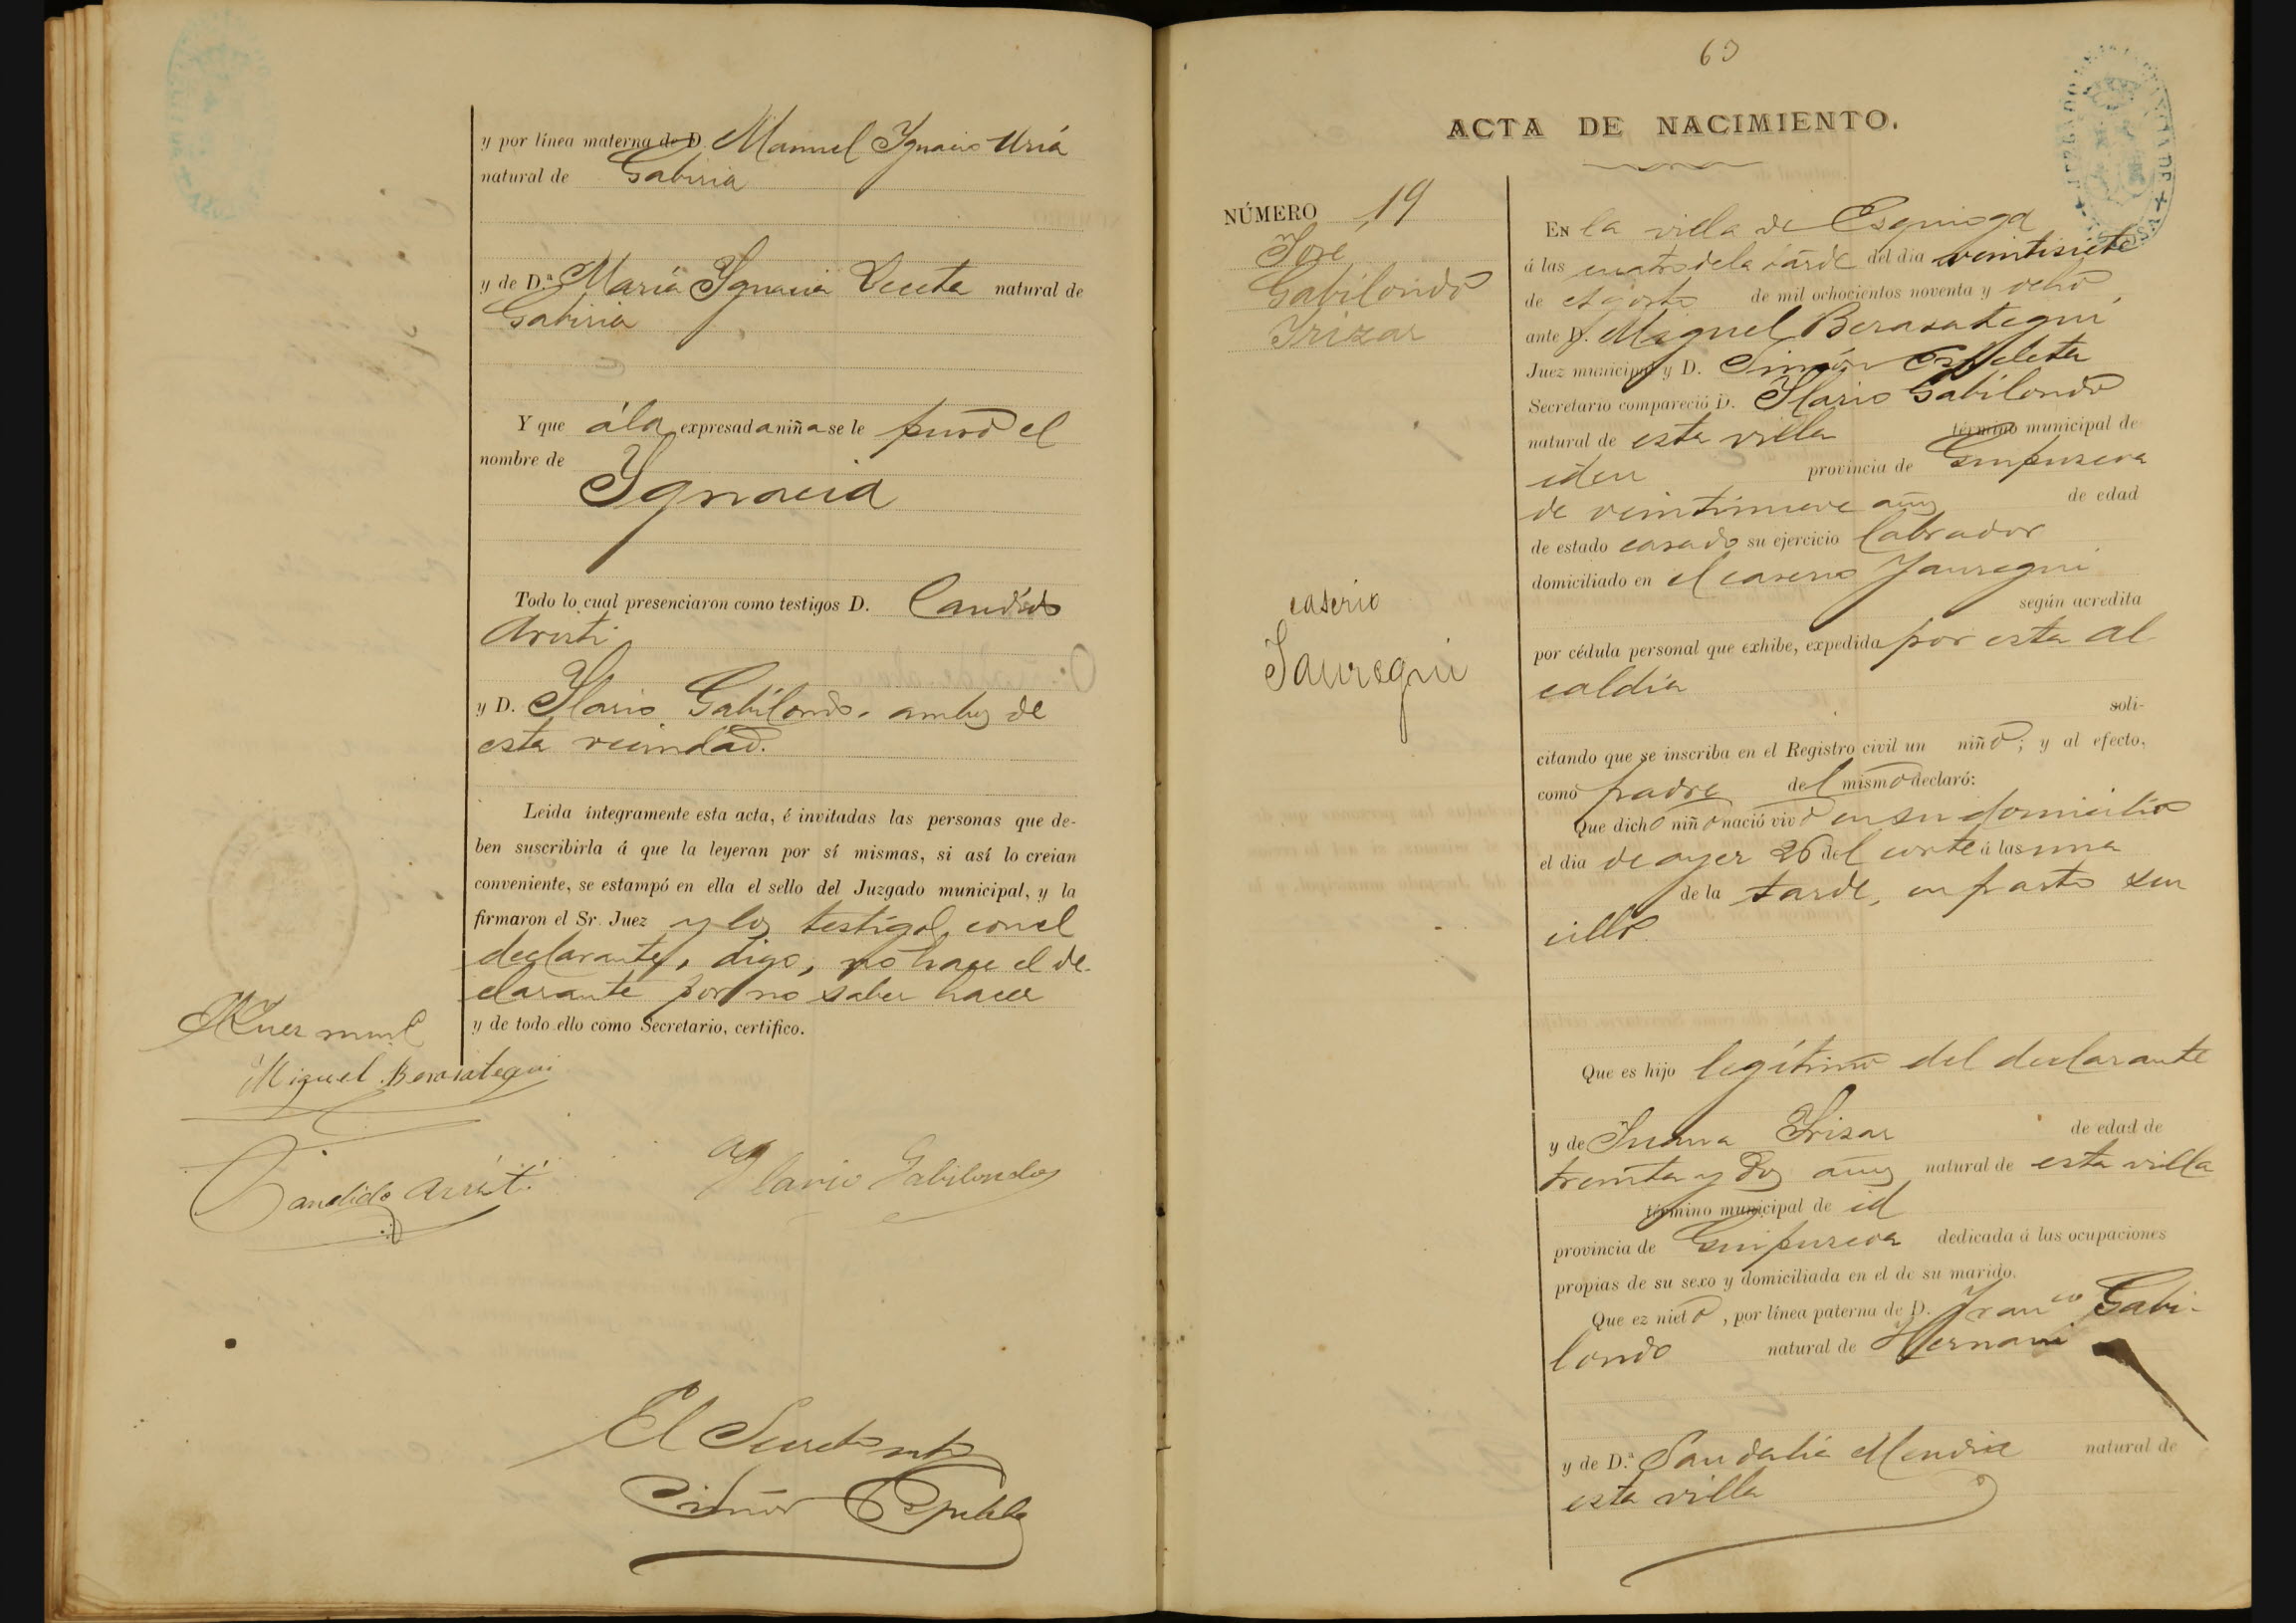 y por línea materna de D. Manuel Ygnacio Uriá
natural de Gabiria
y de D.ª María Ygnacia Veceta natural de
Gabiria
Y que á la expresada niña se le puso el
nombre de
Ygnacia
Todo lo cual presenciaron como testigos D. Candido
Aristi
y D. Ylario Gabilondo, ambos de
esta vecindad.
Leida íntegramente esta acta, é invitadas las personas que de-
ben suscribirla á que la leyeran por sí mismas, si así lo creian
conveniente, se estampó en ella el sello del Juzgado municipal, y la
firmaron el Sr. Juez y los testigos, con el
declarante, digo, no hace el de-
clarante por no saber hacer
y de todo ello como Secretario, certifico.
El Juez mun.l
Miguel Berasategui
Candido Aristi
Ylario Gabilondo
El Secretario
Simón Espeleta
63
ACTA DE NACIMIENTO.
NÚMERO 19
Jose
Gabilondo
Yrizar
caserio
Jauregui
En la villa de Esquioga
á las cuatro de la tarde del dia veintisiete
de Agosto de mil ochocientos noventa y ocho,
ante D. Miguel Berasategui
Juez municipal y D. Simón Espeleta
Secretario compareció D. Ylario Gabilondo
natural de esta villa término municipal de
iden provincia de Guipuzcoa
de veintinueve años de edad
de estado casado su ejercicio labrador
domiciliado en el caserio Jauregui
según acredita
por cédula personal que exhibe, expedida por esta al
caldia
soli-
citando que se inscriba en el Registro civil un niño; y al efecto,
como padre del mismo declaró:
Que dicho niño nació vivo en su domicilio
el dia de ayer 26 del cor.te á las una
de la tarde, en parto sen
cillo.
Que es hijo legítimo del declarante
y de Juana Yrizar de edad de
treinta y dos años natural de esta villa
término municipal de id
provincia de Guipuzcoa dedicada á las ocupaciones
propias de su sexo y domiciliada en el de su marido.
Que ez nieto, por línea paterna de D. Fran.co Gabi-
londo natural de Hernani
y de D.ª Sandalia Mendia natural de
esta villa